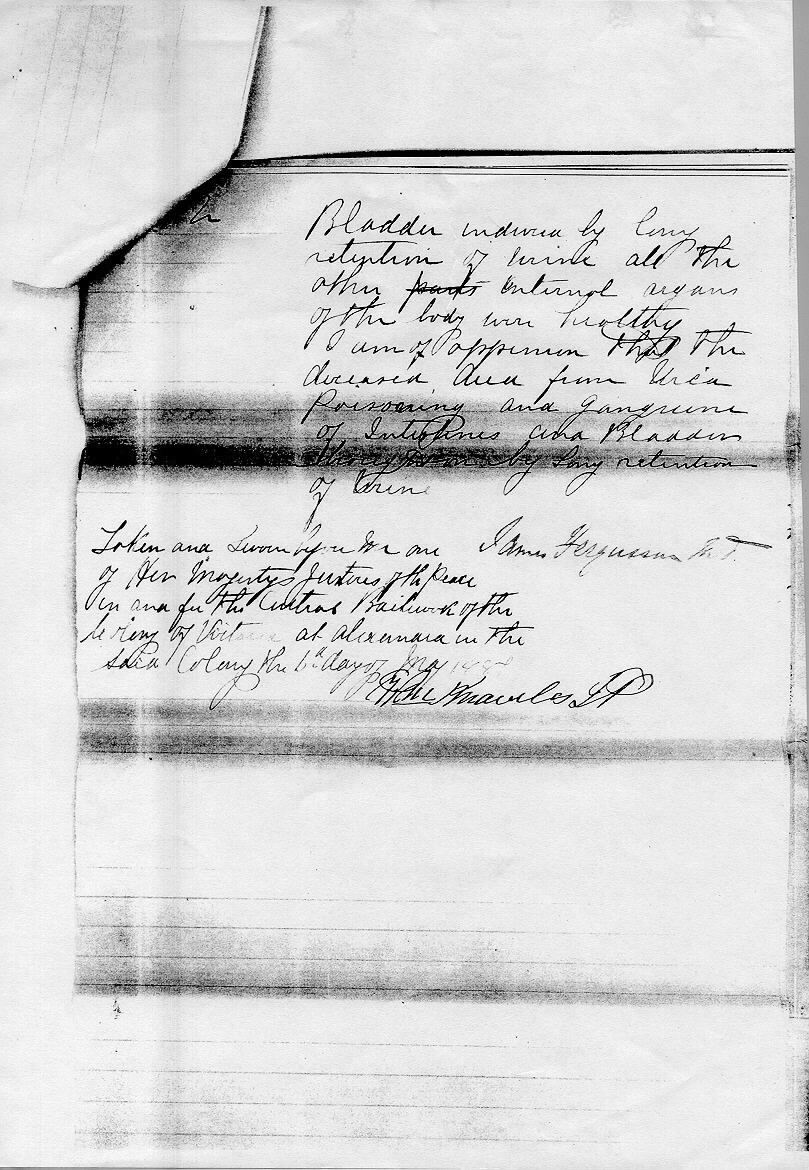 Bladder induced by long
retention of Urine all the
other parts internal organs
of the body were healthy
I am of oppinion that the
deceased died from Urea
Poisoning and gangreene
of Intestines and Bladder
by long retention
of Urine
Taken and Sworn before me one James Fergusson
of Her Majestys Justices of the Peace
in and for the Central Bailiwick of the
Colony of Victoria at Alexandra in the
said Colony the day of May
Knowles JP